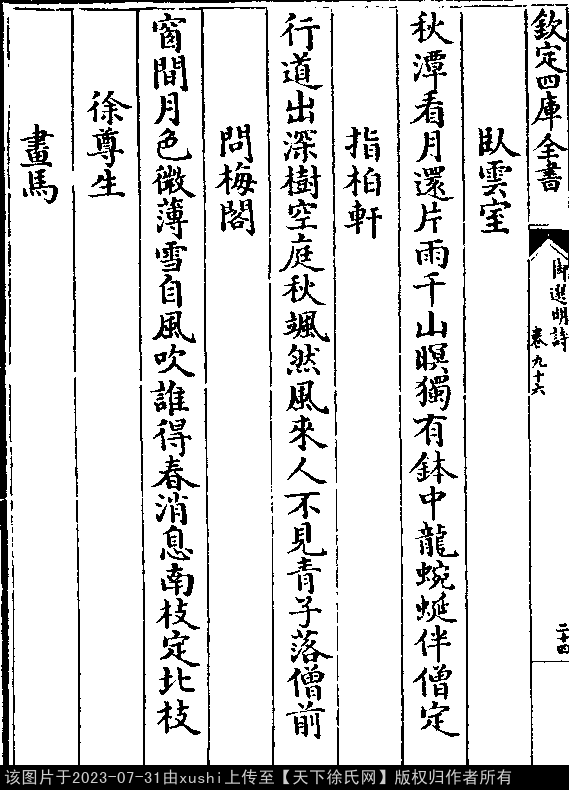 欽定四庫全書
御選明詩
卷九十六
二十四
臥雲室
秋潭看月還片雨千山暝獨有鉢中龍蜿蜒伴僧定
指柏軒
行道出深樹空庭秋颯然風來人不見青子落僧前
問梅閣
窗間月色微薄雪自風吹誰得春消息南枝定北枝
徐尊生
畫馬
该图片于2023-07-31由xushi上传至【天下徐氏网】版权归作者所有